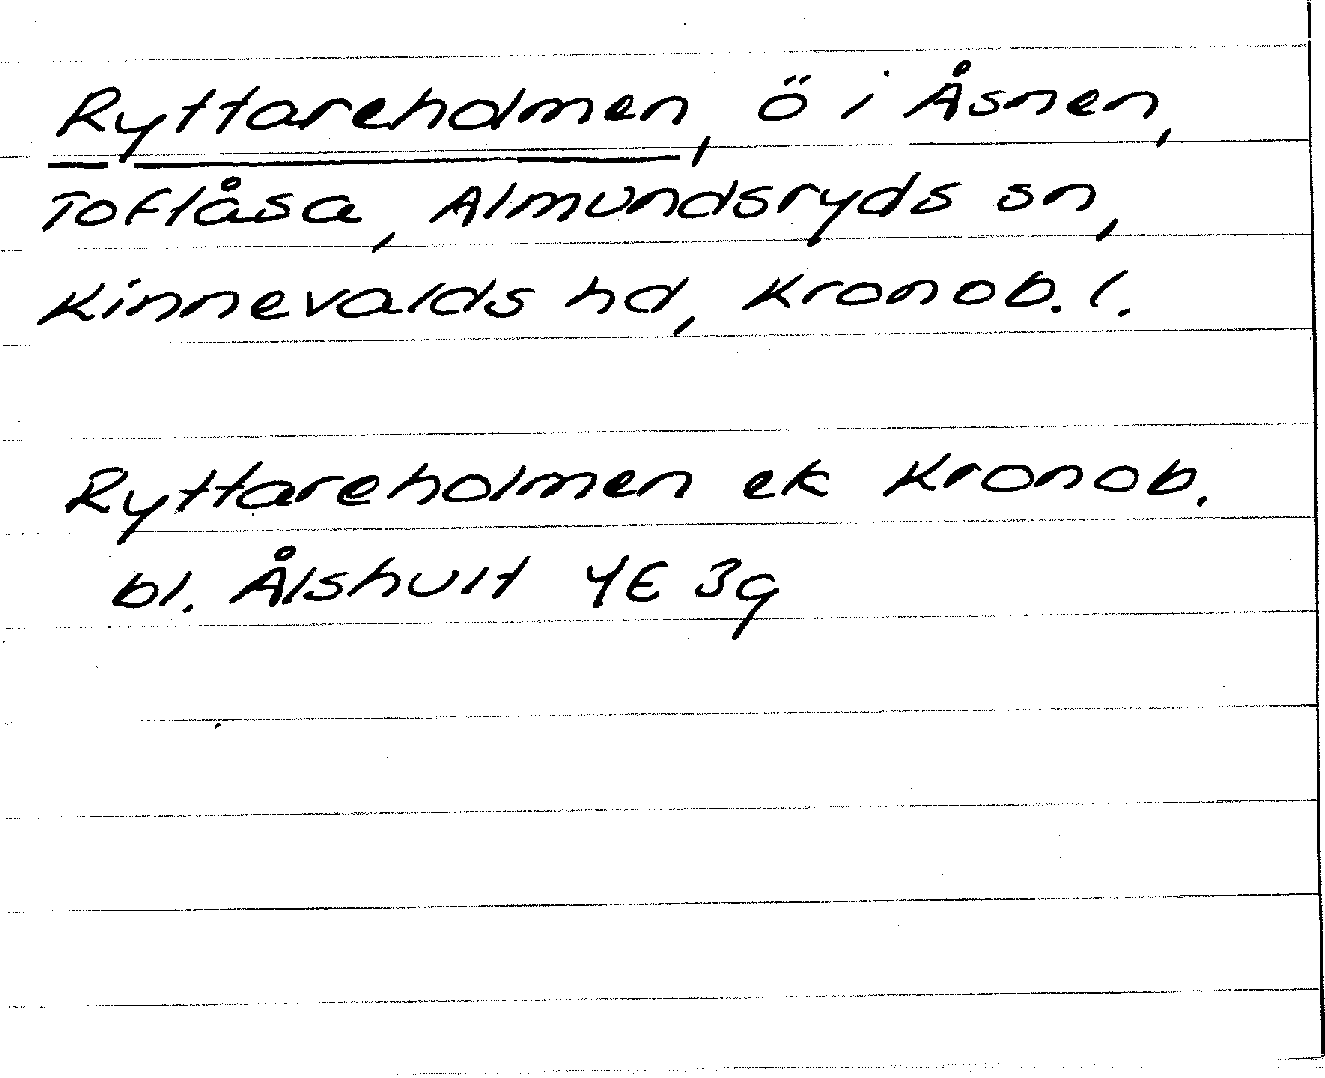 Ryttareholmen, ö i Åsnen,
Toflåsa, Almundsryds sn,
Kinnevalds hd, Kronob. l.
Ryttareholmen ek Kronob.
bl. Ålshult 4E 3g